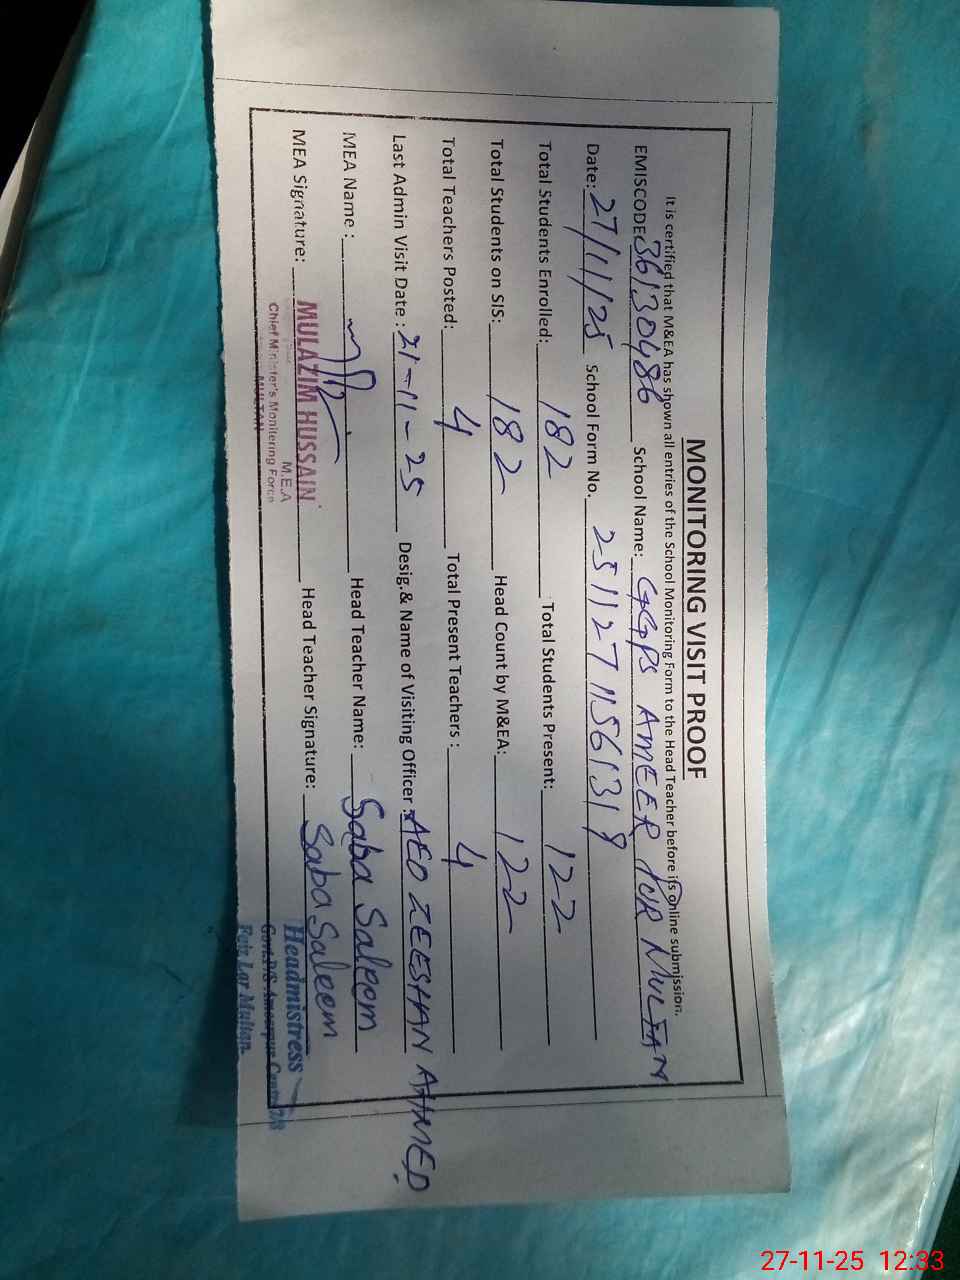 MONITORING VISIT PROOF
It is certified that M&EA has shown all entries of the School Monitoring Form to the Head Teacher before its online submission.
EMISCODE 36130486 School Name: GGPS AMEER PUR MULTAN
Date: 27/11/25 School Form No. 25112711561319
Total Students Enrolled: 182 Total Students Present: 122
Total Students on SIS: 182 Head Count by M&EA: 122
Total Teachers Posted: 4 Total Present Teachers : 4
Last Admin Visit Date : 21-11-25 Desig.& Name of Visiting Officer : AEO ZEESHAN AHMED
MEA Name : Head Teacher Name: Saba Saleem
MEA Signature: Head Teacher Signature: Saba Saleem
MULAZIM HUSSAIN
M.E.A
Chief Minister's Monitoring Force
MULTAN
Headmistress
Govt.P/S Ameerpur
Faiz Lar Multan
27-11-25 12:33